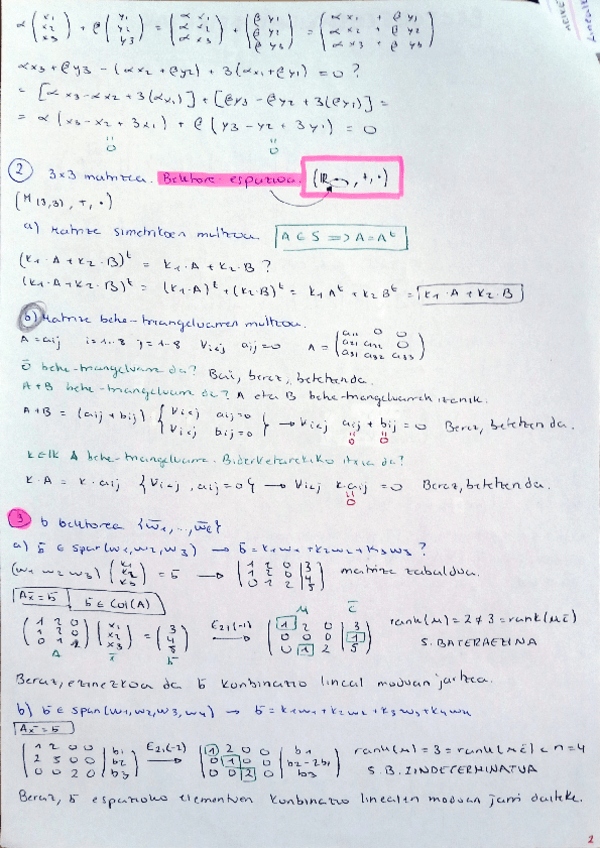 α(x1 x2 x3) + β(y1 y2 y3) = (αx1 αx2 αx3) + (βy1 βy2 βy3) = (αx1 + βy1 αx2 + βy2 αx3 + βy3)
αx3 + βy3 - (αx2 + βy2) + 3(αx1 + βy1) = 0 ?
= [αx3 - αx2 + 3(αx1)] + [βy3 - βy2 + 3(βy1)] =
= α(x3 - x2 + 3x1) + β(y3 - y2 + 3y1) = 0
0 0
2 3x3 matrizea. Bektore espazioa. (IR , +, ·)
(M(3,3), +, ·)
a) Matrize simetrikoen multzoa. A ∈ S => A = Aᵗ
(k1·A + k2·B)ᵗ = k1·A + k2·B ?
(k1·A + k2·B)ᵗ = (k1·A)ᵗ + (k2·B)ᵗ = k1Aᵗ + k2Bᵗ = k1·A + k2·B
b) Matrize behe-triangeluarren multzoa.
A = aij ∀i<j aij = 0 A = (a11 0 0 a21 a22 0 a31 a32 a33)
0̄ behe-triangeluarra da? Bai, beraz, betetzen da.
A+B behe-triangeluarra da? A eta B behe-triangeluarrak izanik.
A+B = (aij + bij) {∀i<j aij = 0 ∀i<j bij = 0} → ∀i<j aij + bij = 0 Beraz, betetzen da.
0 0
k∈IK A behe-triangeluarra. Biderketarekiko itxia da?
k·A = k·aij {∀i<j, aij = 0} → ∀i<j k·aij = 0 Beraz, betetzen da.
0
3 b bektorea {w̄1, ..., w̄e}
a) b̄ ∈ span(w1, w2, w3) → b̄ = k1w1 + k2w2 + k3w3 ?
(w1 w2 w3) (k1 k2 k3) = b̄ → (1 2 0 | 3 1 2 0 | 4 0 1 2 | 5) matrize zabaldua.
Ax̄ = b̄ b̄ ∈ Col(A)
M c̄
(1 2 0 1 2 0 0 1 2) (x1 x2 x3) = (3 4 5) E2,1(-1) → (1 2 0 | 3 0 0 0 | 1 0 1 2 | 5) rank(M) = 2 ≠ 3 = rank(Mc̄)
A x̄ b̄ S. BATERAEZINA
Beraz, ezinezkoa da b̄ konbinazio lineal moduan jartzea.
b) b̄ ∈ span(w1, w2, w3, w4) → b̄ = k1w1 + k2w2 + k3w3 + k4w4
Ax̄ = b̄
(1 2 0 0 | b1 2 5 0 0 | b2 0 0 2 0 | b3) E2,1(-2) → (1 2 0 0 | b1 0 1 0 0 | b2-2b1 0 0 2 0 | b3) rank(M) = 3 = rank(Mc̄) < n = 4
S.B. INDETERMINATUA
Beraz, b̄ espazioko elementuen konbinazio linealen moduan jarri daiteke.
2